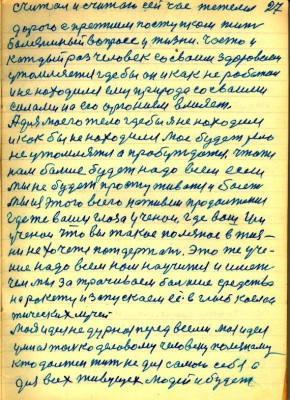 считал и считаю сей час тяжелый 27
дорого с прежним поступком жить
болезненный вопрос у жизни. Часто и
каждый раз человек со своим здоровьем
утомляется где бы он и как не работал
и не находился ему природа со своими
силами на его организм влияет.
А для моего тело где бы я не находился
и как бы не находился мое будет умо
не утомляться а пробуждаться, что
нам больше будет надо всем если
мы не будем простуживаться и болет
мы из этого всего начнем продолжения
где же ваши глаза ученой, где ваш ум
ученой это вы такое полезное в жиз-
ни не хочете поддержать. Это же уче-
ние надо всем нам научится и иметь
чем мы затрачиваем большие средства
на ракету и запускаем её в глыб косми
тических лучей
Моя идея не дурная перед всеми моя идея
умная только деловому человеку полезному
кто должен жить не для самого себя а
для всех живущих людей и будет